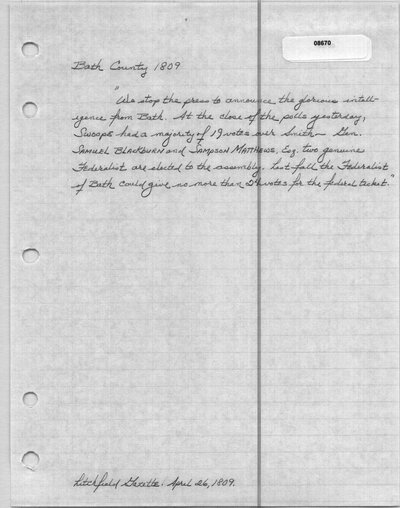 08670
Bath County 1809
"We stop the press to announce the glorious intell-
igence from Bath. At the close of the polls yesterday,
SWOOPE had a majority of 19 votes over Smith— Gen.
SAMUEL BLACKBURN and SAMPSON MATTHEWS, Esq. two genuine
Federalist are elected to the assembly. Last fall the Federalist
of Bath could give no more than 24 votes for the federal ticket."
Litchfield Gazette. April 26, 1809.